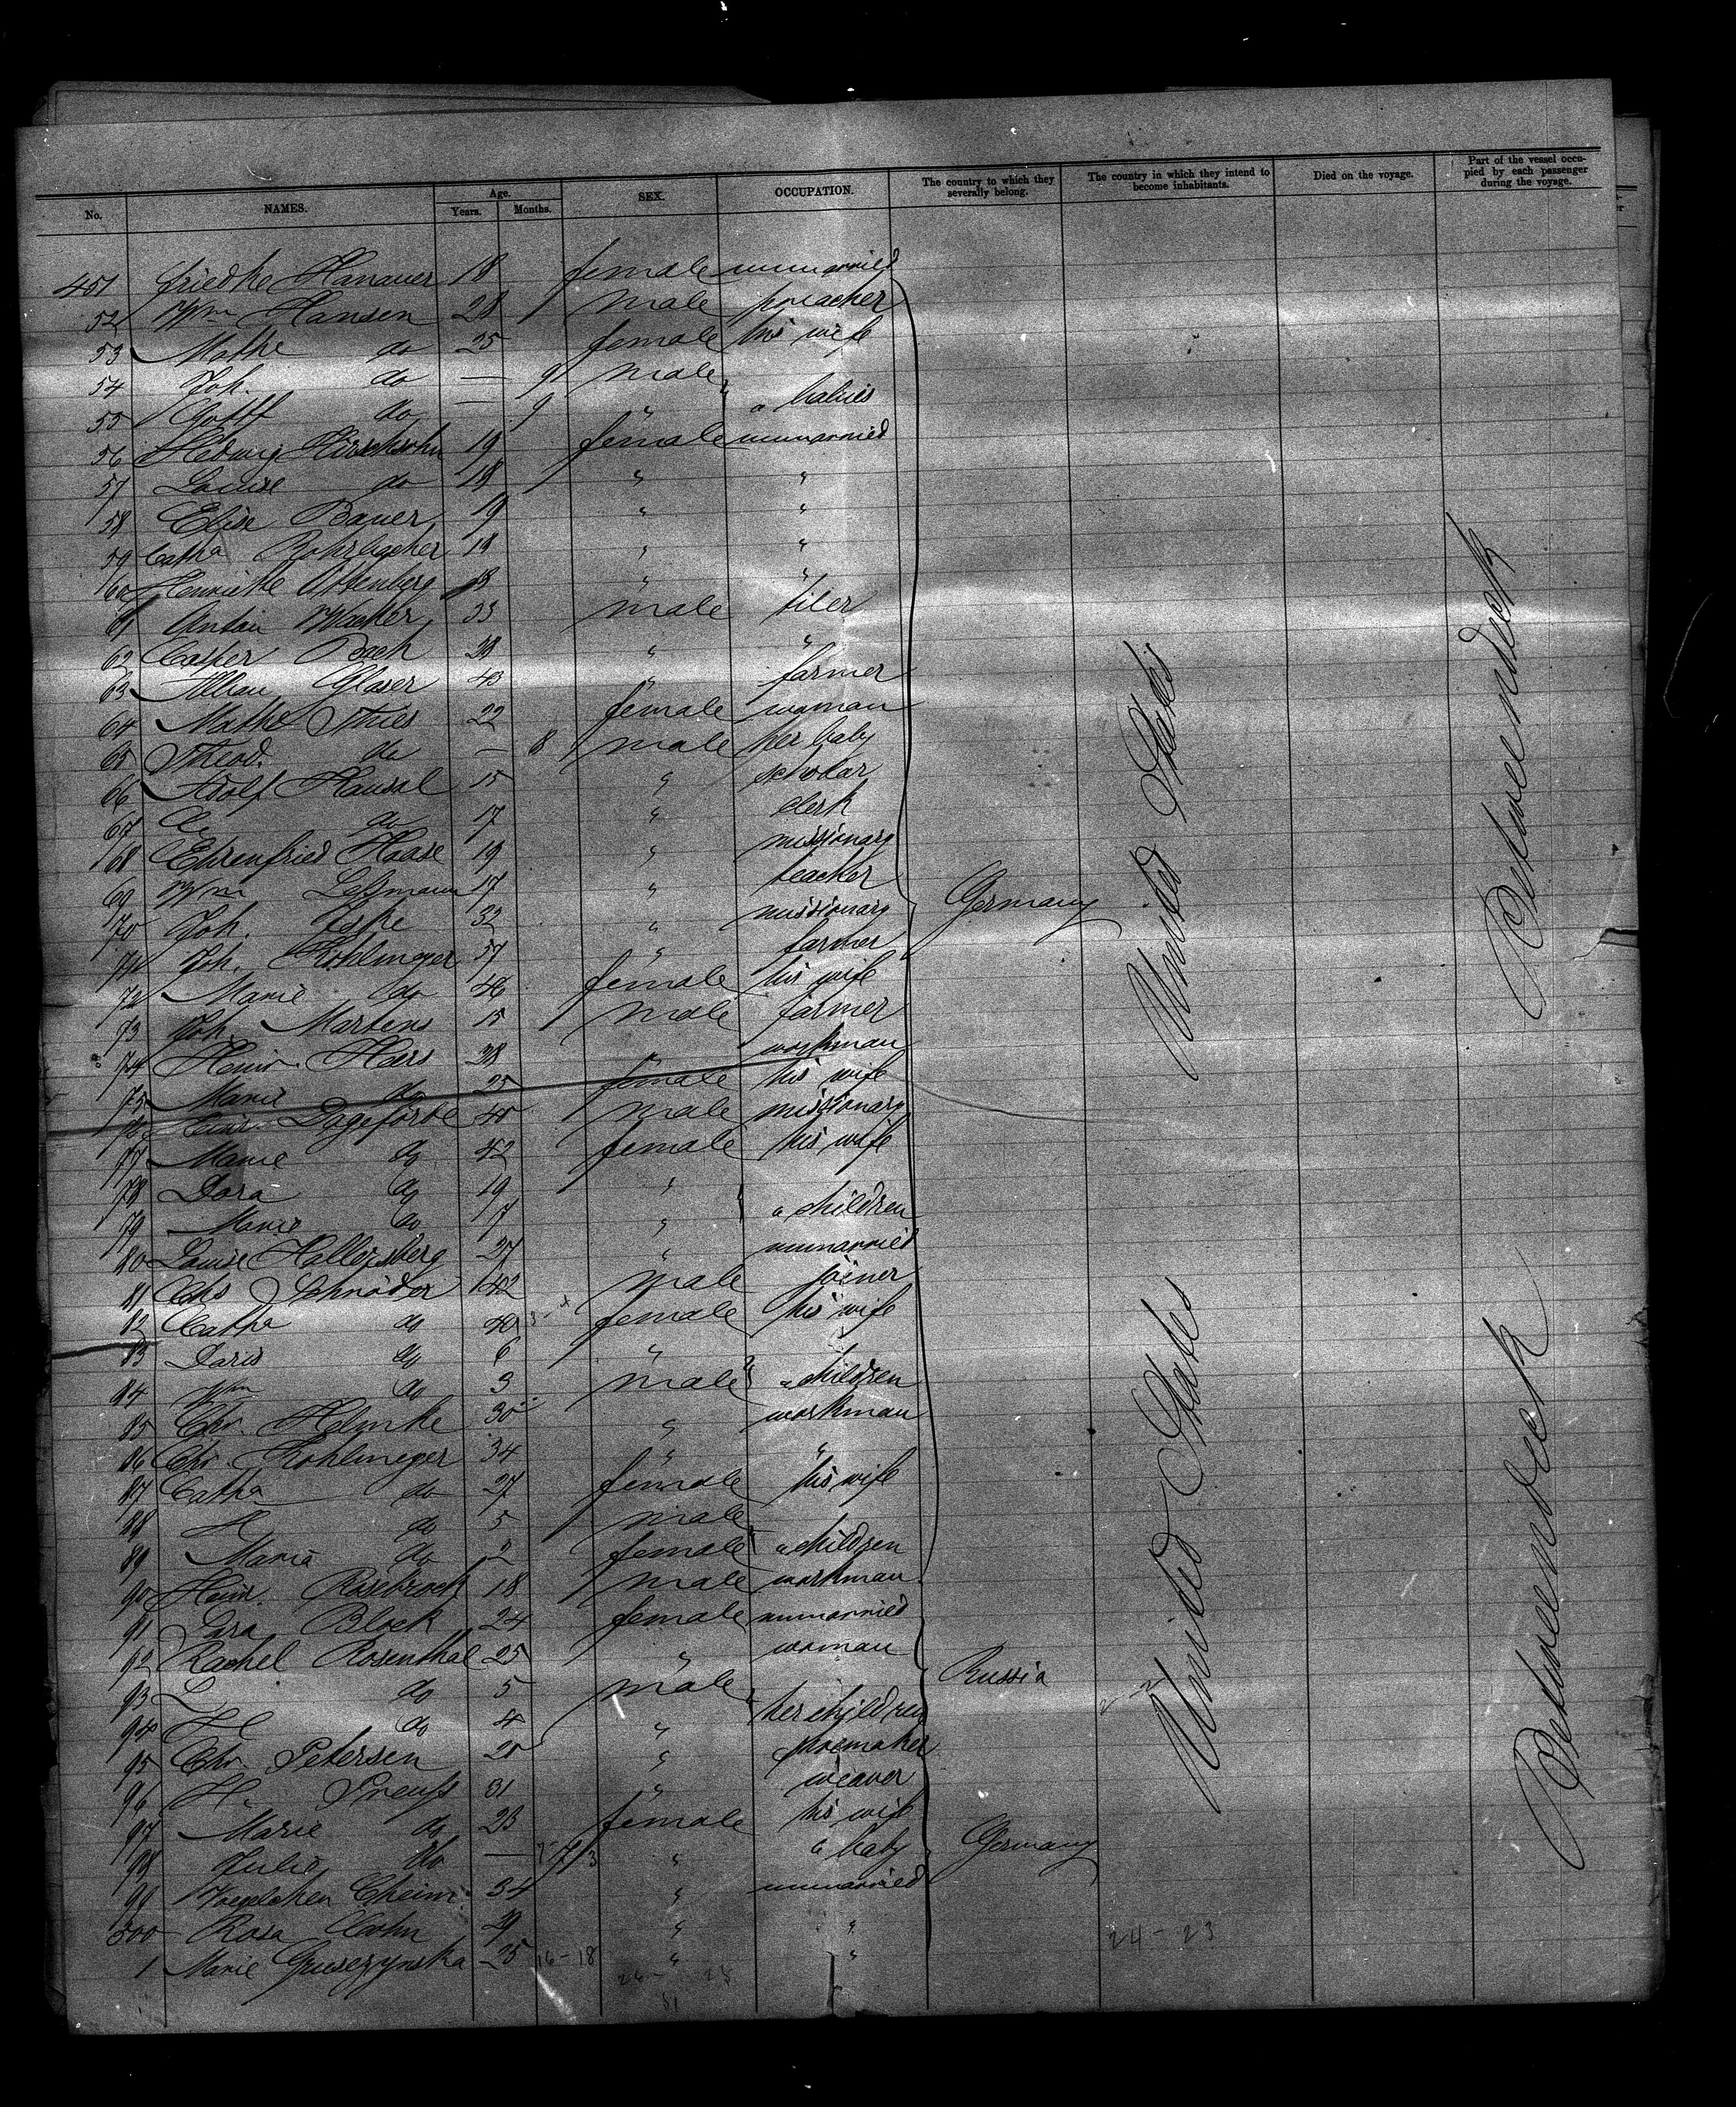 No. NAMES. Age. Years. Months. SEX. OCCUPATION. The country to which they severally belong. The country in which they intend to become inhabitants. Died on the voyage. Part of the vessel occupied by each passenger during the voyage.
451 Friedke Hanauer 18 female unmarried
52 Wm Hansen 28 male preacher
53 Mathe do 25 female his wife
54 Joh. do — 9 male
55 Gottf do — 9 " " babies
56 Hedwig Hirschsohn 19 female unmarried
57 Louise do 18 " "
58 Elise Bauer 19 " "
59 Catha Rohrbacher 18 " "
60 Henriette Ottenberg 18 " "
61 Anton Wacker 33 male tiler
62 Casper Bach 28 " "
63 Glaser 43 " farmer
64 Mathe Thies 22 female woman
65 Theod. do — 8 male her baby
66 Adolf Hansal 15 " scholar
67 do 17 " clerk
68 Ehrenfried Haase 19 " missionary
69 Wm Leßmann 17 " teacher
70 Joh. 32 " missionary Germany
71 Joh. Kohlmeyer 57 " farmer
72 Marie do 46 female his wife
73 Joh. Martens 15 male farmer
74 Heinr. Heers 28 " workman
75 Marie do 25 female his wife
76 Heinr. Dageförde 40 male missionary
77 Marie do 42 female his wife
78 Dora do 19 "
79 Marie do 7 " " children
80 Louise Hallersberg 27 " unmarried
81 Chs Schröder 42 male joiner
82 Catha do 40 female his wife
83 Doris do 6 "
84 Wm do 3 male " children
85 Chr. Helmke 30 " workman
86 Chr. Kohlmeyer 34 " "
87 Catha do 27 female his wife
88 H do 5 male
89 Maria do 2 female " children
90 Heinr. Rosebrock 18 male workman
91 Sara Block 24 female unmarried
92 Rachel Rosenthal 25 " woman Russia
93 L do 5 male
94 H do 4 " her children
95 Chr. Petersen 20 " shoemaker
96 H. Preuss 31 " weaver
97 Marie do 23 female his wife
98 Julie do — " " baby Germany
99 Voegelchen Cheim 34 " unmarried
500 Rosa Cohn 29 " "
1 Marie Gusczynska 25 16-18 " "
24-23
United States
United States
Betweendeck
Betweendeck